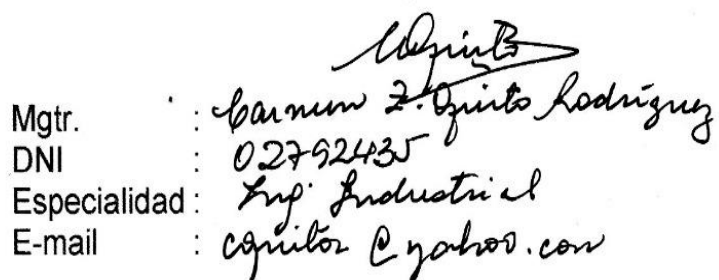 Mgtr. : Carmen Z. Quito Rodríguez
DNI : 02792435
Especialidad : Ing. Industrial
E-mail : cquitor@yahoo.com